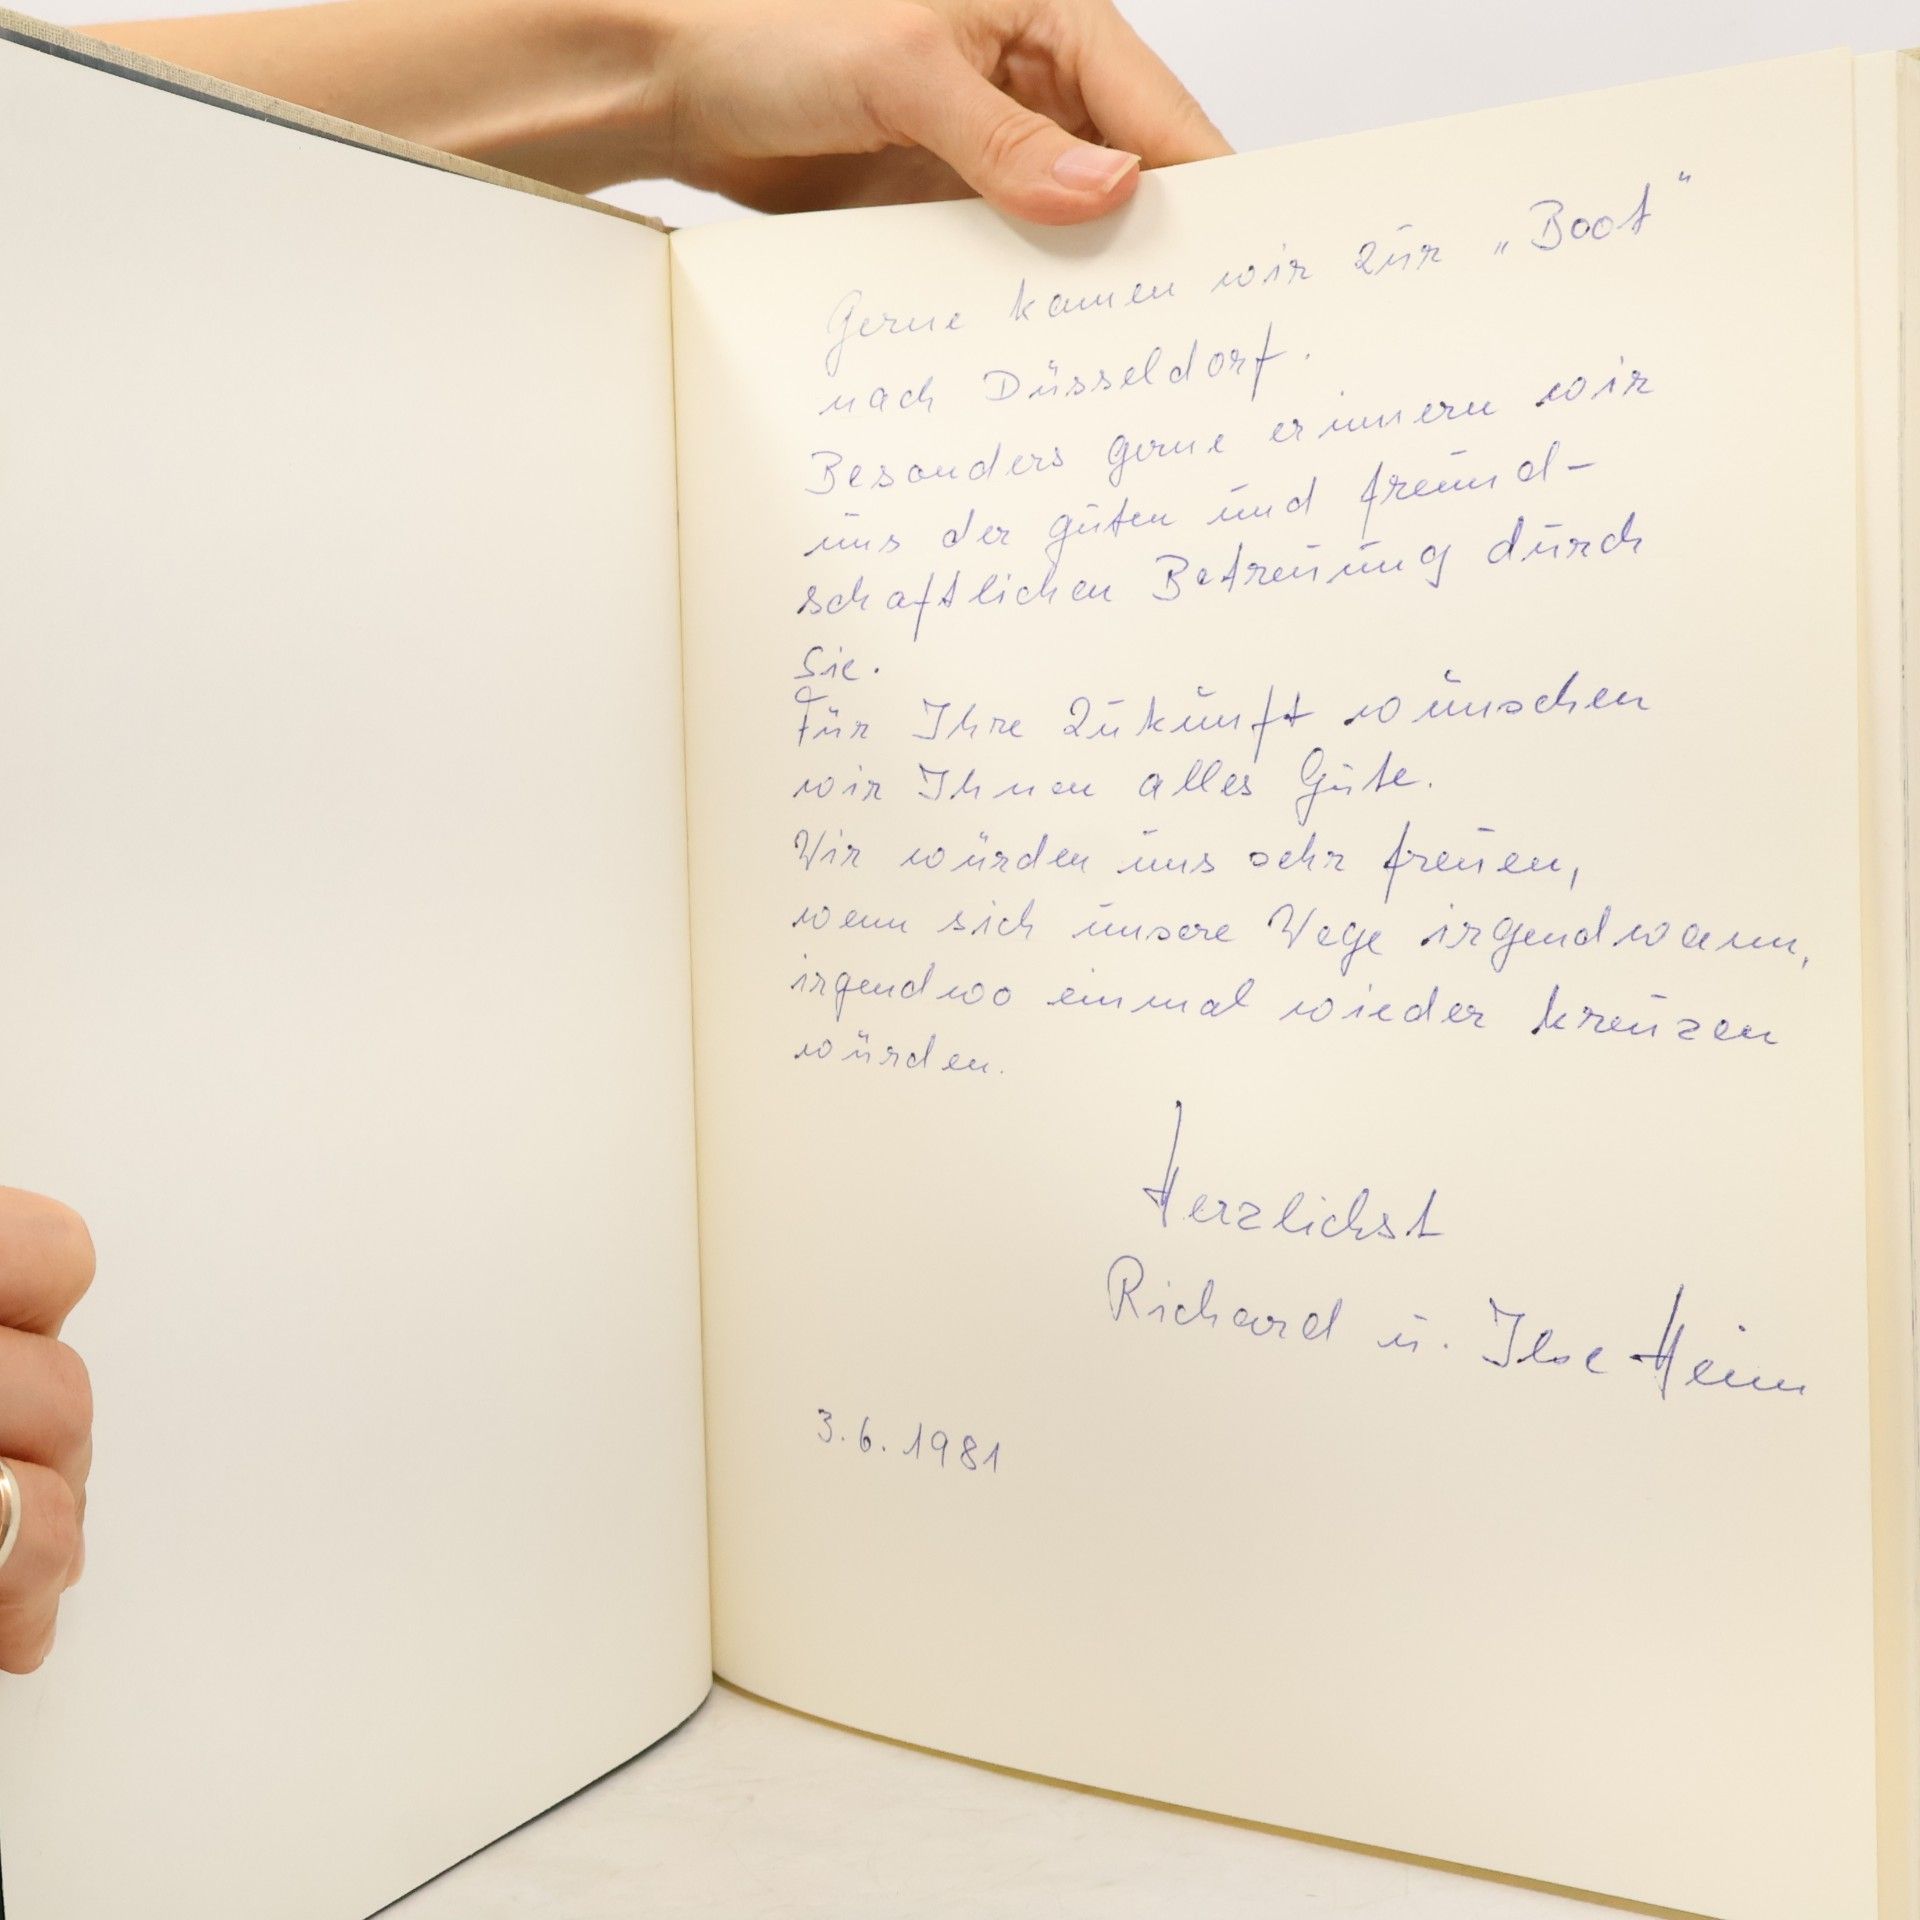 Gerne kamen wir zur „Boot“
nach Düsseldorf.
Besonders gerne erinnern wir
uns der guten und freund-
schaftlichen Betreuung durch
Sie.
Für Ihre Zukunft wünschen
wir Ihnen alles Gute.
Wir würden uns sehr freuen,
wenn sich unsere Wege irgendwann,
irgendwo einmal wieder kreuzen
würden.
Herzlichst
Richard u. Ilse Heim
3.6.1981